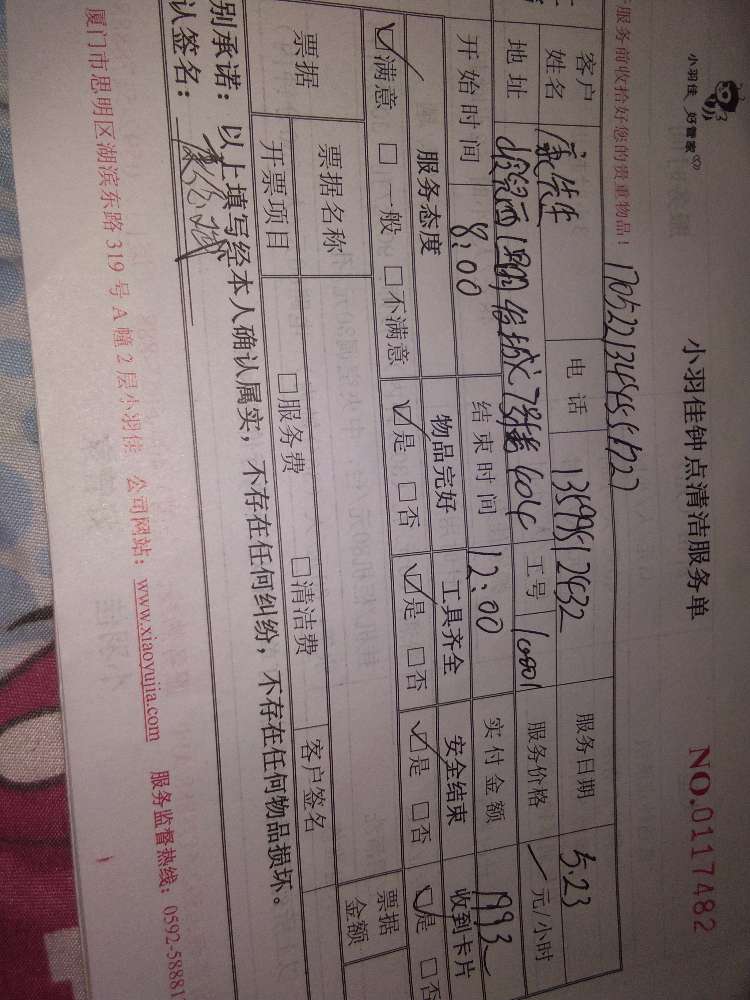 小羽佳 好管家
小羽佳钟点清洁服务单
NO.0117482
服务前收拾好您的贵重物品！
客户姓名 康先生 电话 服务日期 5.23
地址 工号 10801 服务价格 元/小时
开始时间 8:00 结束时间 12:00 实付金额
服务态度 物品完好 工具齐全 安全结束 收到卡片
☑满意 □一般 □不满意 ☑是 □否 ☑是 □否 ☑是 □否 ☑是 □否
票据 票据名称 票据金额
开票项目 □服务费 □清洁费 客户签名
别承诺：以上填写经本人确认属实，不存在任何纠纷，不存在任何物品损坏。
认签名：
厦门市思明区湖滨东路319号A幢2层小羽佳 公司网站：www.xiaoyujia.com 服务监督热线：0592-58881